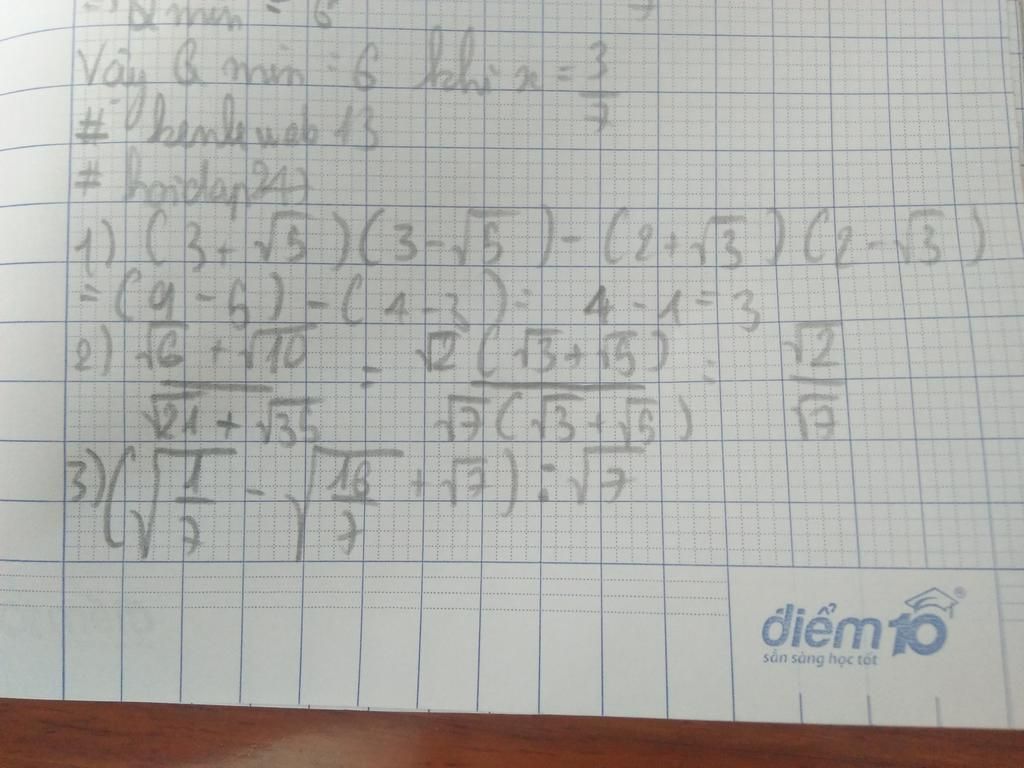 => Q min = 6 7
Vậy Q min = 6 khi x = 3/7
# kenleweb 13
# hoidap247
1) (3 + √5)(3 - √5) - (2 + √3)(2 - √3)
= (9 - 5) - (4 - 3) = 4 - 1 = 3
2) (√6 + √10)/(√21 + √35) = √2(√3 + √5)/√7(√3 + √5) = √2/√7
3) (√(1/7) - √(16/7) + √7) : √7
điểm 10 ®
sẵn sàng học tốt